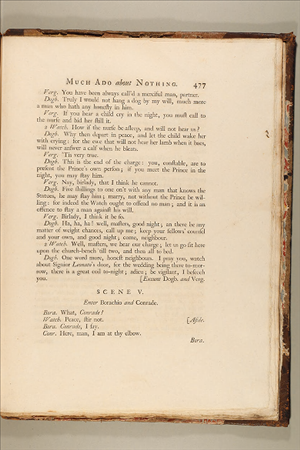 MUCH ADO about NOTHING. 477
Verg. You have been always call'd a merciful man, partner.
Dogb. Truly I would not hang a dog by my will, much more
a man who hath any honesty in him.
Verg. If you hear a child cry in the night, you must call to
the nurse and bid her still it.
2 Watch. How if the nurse be asleep, and will not hear us?
Dogb. Why then depart in peace, and let the child wake her
with crying: for the ewe that will not hear her lamb when it baes,
will never answer a calf when he bleats.
Verg. 'Tis very true.
Dogb. This is the end of the charge: you, constable, are to
present the Prince's own person; if you meet the Prince in the
night, you may stay him.
Verg. Nay, birlady, that I think he cannot.
Dogb. Five shillings to one on't with any man that knows the
Statues, he may stay him; marry, not without the Prince be wil-
ling: for indeed the Watch ought to offend no man; and it is an
offence to stay a man against his will.
Verg. Birlady, I think it be so.
Dogb. Ha, ha, ha! well, masters, good night; an there be any
matter of weight chances, call up me; keep your fellows' counsel
and your own, and good night; come, neighbour.
2 Watch. Well, masters, we hear our charge; let us go sit here
upon the church-bench till two, and then all to bed.
Dogb. One word more, honest neighbours. I pray you, watch
about Signior Leonato's door, for the wedding being there to-mor-
row, there is a great coil to-night; adieu; be vigilant, I beseech
you. [Exeunt Dogb. and Verg.
SCENE V.
Enter Borachio and Conrade.
Bora. What, Conrade!
Watch. Peace, stir not. [Aside.
Bora. Conrade, I say.
Conr. Here, man, I am at thy elbow.
Bora.